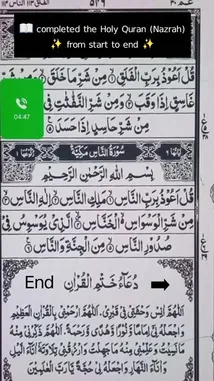 الفلق ١١٣ الناس ١١٤
٥٢٩
عم ٣٠
📖 completed the Holy Quran (Nazrah)
✨ from start to end ✨
قُلْ اَعُوْذُ بِرَبِّ الْفَلَقِ ۙ مِنْ شَرِّ مَا خَلَقَ ۙ
غَاسِقٍ اِذَا وَقَبَ ۙ وَمِنْ شَرِّ النَّفّٰثٰتِ فِي
مِنْ شَرِّ حَاسِدٍ اِذَا حَسَدَ
04:47
سُوْرَةُ النَّاسِ مَكِّيَّةٌ
بِسْمِ اللّٰهِ الرَّحْمٰنِ الرَّحِيْمِ
قُلْ اَعُوْذُ بِرَبِّ النَّاسِ ۙ مَلِكِ النَّاسِ ۙ اِلٰهِ النَّاسِ ۙ
مِنْ شَرِّ الْوَسْوَاسِ الْخَنَّاسِ ۙ الَّذِيْ يُوَسْوِسُ فِيْ
صُدُوْرِ النَّاسِ ۙ مِنَ الْجِنَّةِ وَالنَّاسِ
End دُعَآءُ خَتْمِ الْقُرْاٰنِ ➡
اَللّٰهُمَّ اٰنِسْ وَحْشَتِيْ فِيْ قَبْرِيْ اَللّٰهُمَّ ارْحَمْنِيْ بِالْقُرْاٰنِ الْعَظِيْمِ
وَاجْعَلْهُ لِيْ اِمَامًا وَّنُوْرًا وَّهُدًى وَّرَحْمَةً اَللّٰهُمَّ ذَكِّرْنِيْ مِنْهُ
مَا نَسِيْتُ وَعَلِّمْنِيْ مِنْهُ مَا جَهِلْتُ وَارْزُقْنِيْ تِلَاوَتَهٗ اٰنَآءَ الَّيْلِ
وَاٰنَآءَ النَّهَارِ وَاجْعَلْهُ لِيْ حُجَّةً يَّا رَبَّ الْعٰلَمِيْنَ